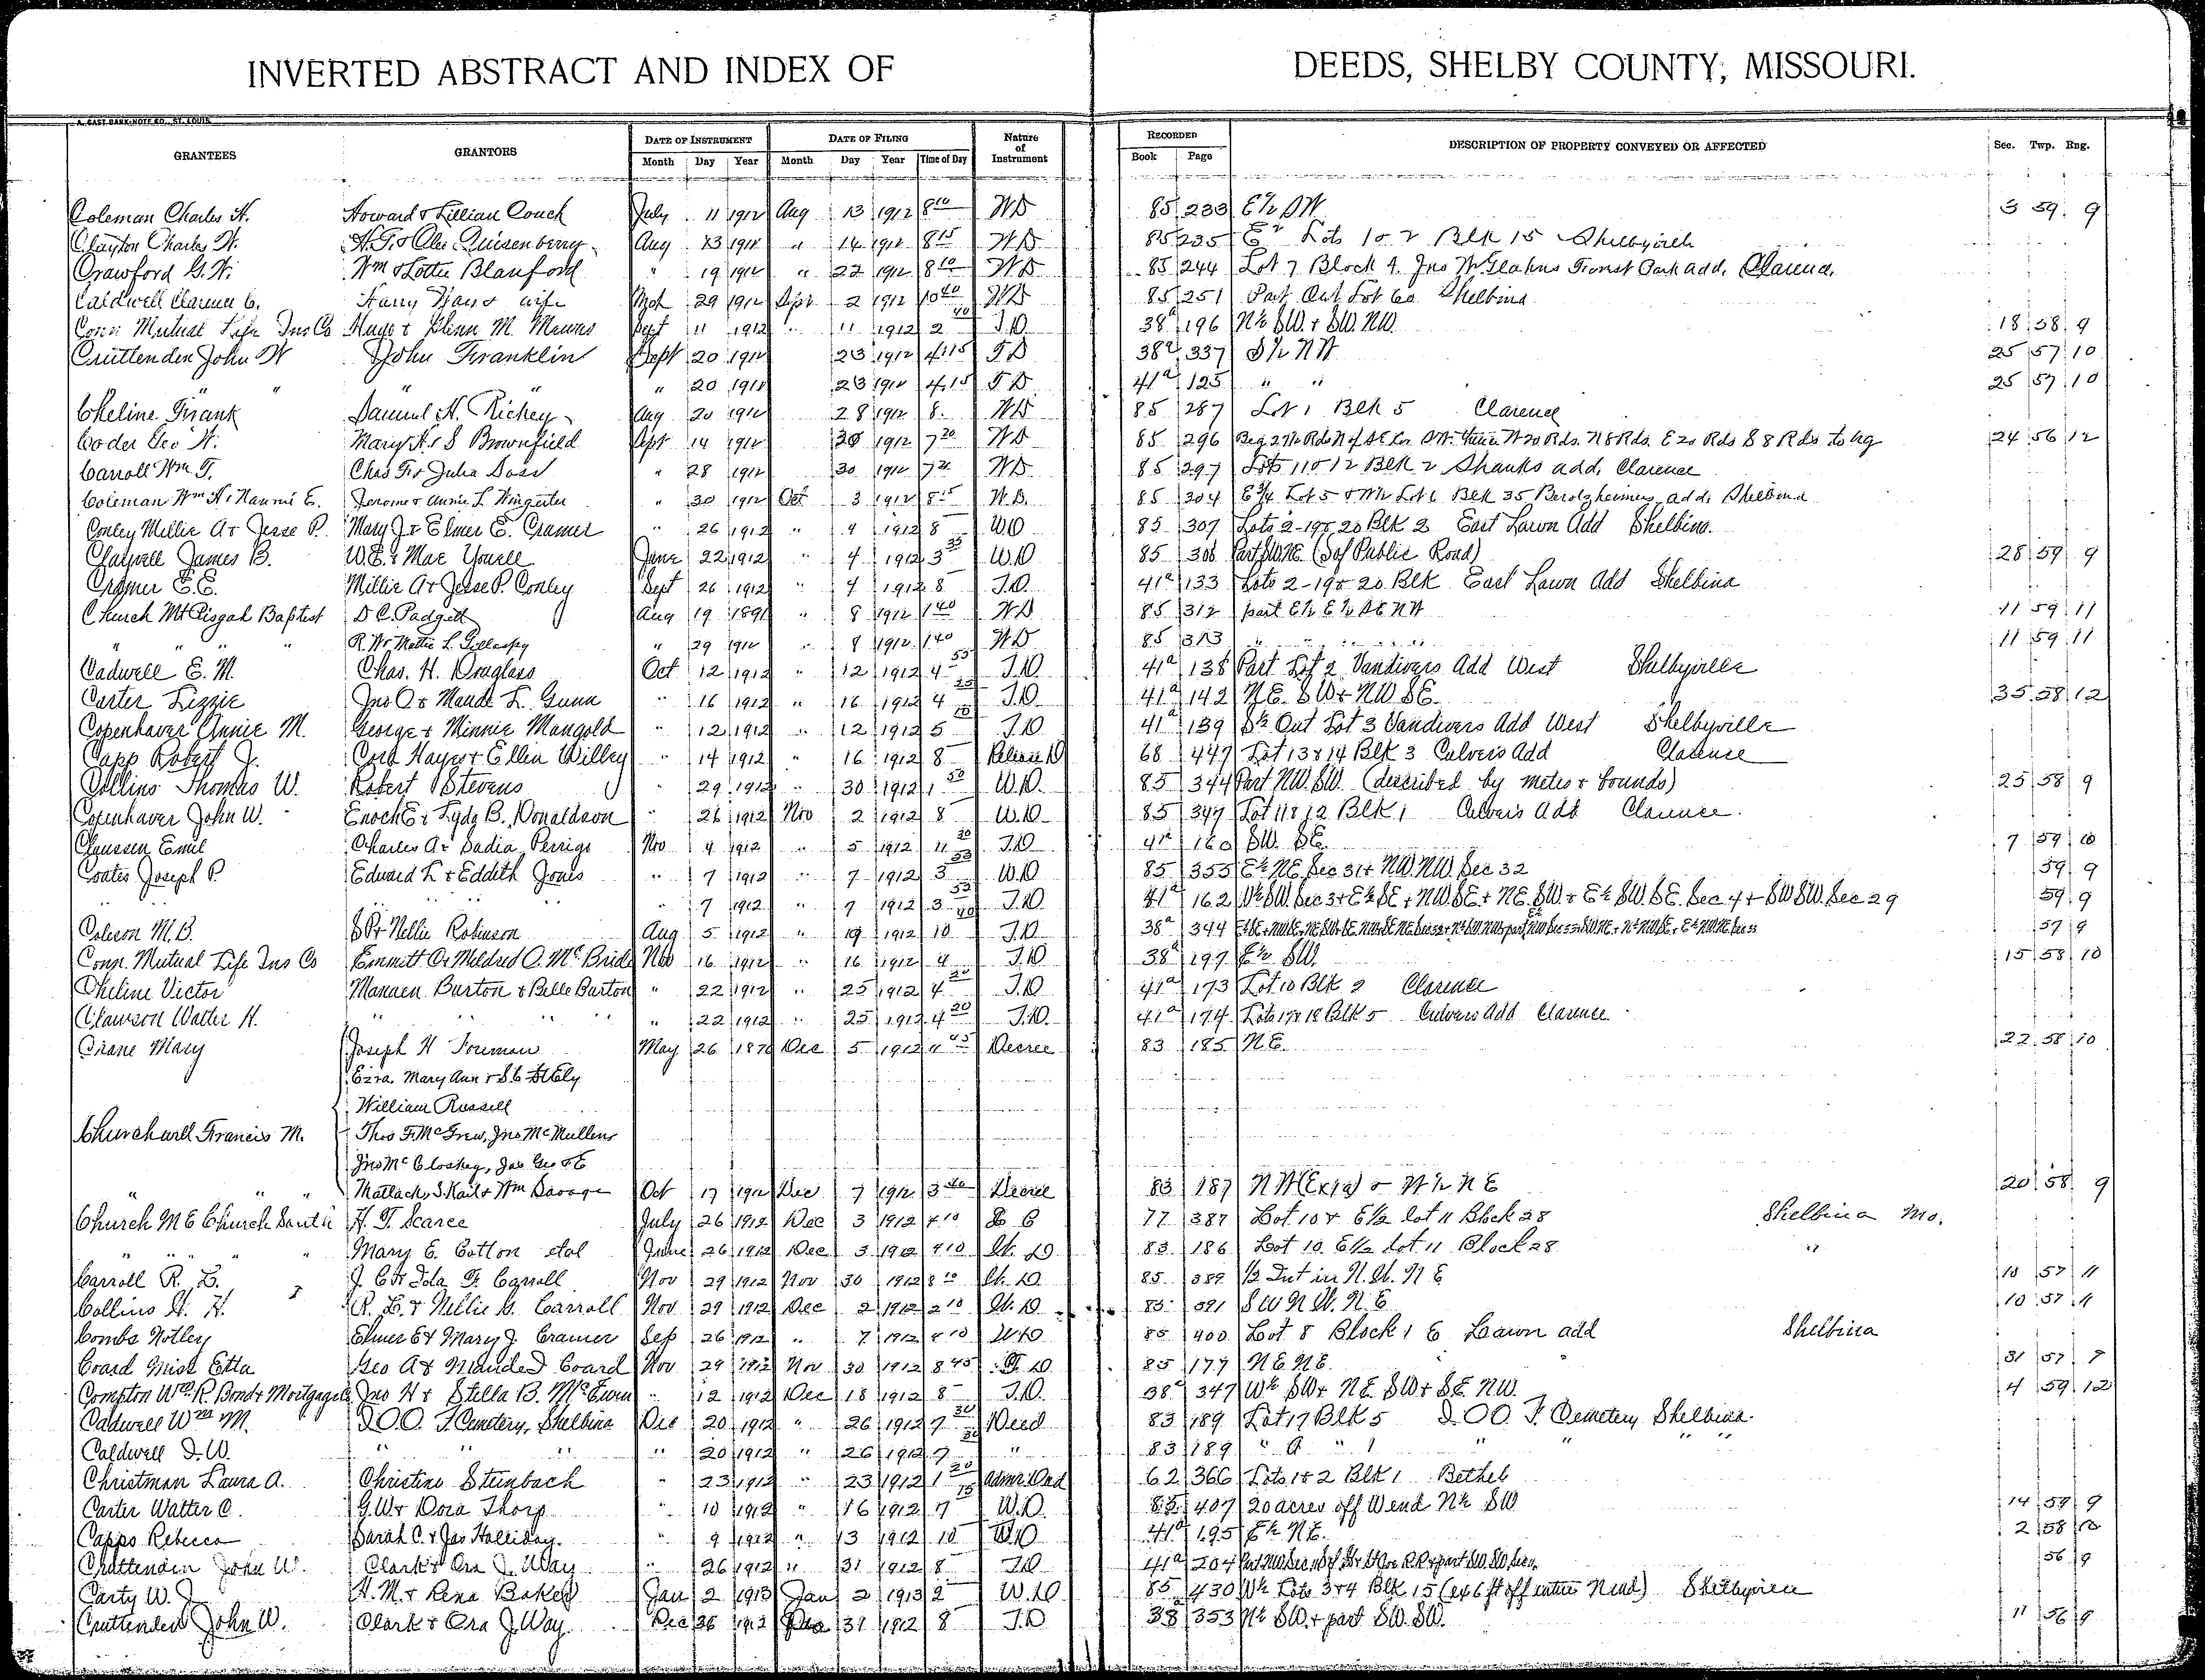 INVERTED ABSTRACT AND INDEX OF DEEDS, SHELBY COUNTY, MISSOURI.
A. GAST BANK-NOTE CO., ST. LOUIS.
GRANTEES GRANTORS DATE OF INSTRUMENT DATE OF FILING Nature of Instrument RECORDED DESCRIPTION OF PROPERTY CONVEYED OR AFFECTED Sec. Twp. Rng.
Month Day Year Month Day Year Time of Day Book Page
Coleman Charles H. Howard & Lillian Couch July 11 1912 Aug 13 1912 8 10 WD 85 233 E½ SW 3 59 9
Clayton Charles W. H.T. & Ola Quisenberry Aug 13 1912 " 14 1912 8 15 WD 85 235 E½ Lots 1 & 2 Blk 15 Shelbyville
Crawford G.W. Wm & Lottie Blanford " 19 1912 " 22 1912 8 10 WD 85 244 Lot 7 Block 4 Jno Park add. Clarence
Caldwell Clarence C. Harry Hay & wife Mch 29 1912 Sept 2 1912 10 40 WD 85 251 Part Out Lot 60 Shelbina
Conn Mutual Life Ins Co Hugo & Glenn M. Mewes Sept 11 1912 " 11 1912 2 40 T.D. 38a 196 N½ SW. & SW. NW. 18 58 9
Cruttenden John W John Franklin Sept 20 1912 23 1912 4:15 TD 38a 337 S½ NW 25 57 10
" " " 20 1912 23 1912 4.15 TD 41a 125 " " 25 57 10
Cheline Frank Samuel H. Richey Aug 20 1912 28 1912 8. WD 85 287 Lot 1 Blk 5 Clarence
Coder Geo W. Mary A. & S Brownfield Sept 14 1912 30 1912 7 20 WD 85 296 Beg 2 Rds N of SE Cor thence W 20 Rds. N 8 Rds. E 20 Rds S 8 Rds to bg 24 56 12
Carroll Wm T. Chas F. & Julia Doss " 28 1912 30 1912 7 20 WD 85 297 Lots 11 & 12 Blk 2 Shanks add. Clarence
Coleman Wm H & Nannie E. Jerome & Annie L Wingerter " 30 1912 Oct 3 1912 8 15 W.D. 85 304 E¾ Lot 5 & W½ Lot 6 Blk 35 Berolzheimers add. Shelbina
Conley Millie A & Jesse P. Mary J. & Elmer E. Cramer " 26 1912 " 4 1912 8 W.D 85 307 Lots 2-19 & 20 Blk 2 East Lawn Add Shelbina.
Claywell James B. W.E. & Mae Youell June 22 1912 " 4 1912 3 35 W.D 85 308 Part SW.NE. (S of Public Road) 28 59 9
Cramer E.E. Millie A & Jesse P. Conley Sept 26 1912 " 4 1912 8 T.D. 41a 133 Lots 2-19 & 20 Blk East Lawn Add Shelbina
Church Mt Pisgah Baptist D.C. Padgett Aug 19 1891 " 8 1912 1 40 WD 85 312 part E½ E½ SE NW 11 59 11
" " " R.W. & Mattie L. Gillaspy " 29 1912 " 8 1912 1 40 WD 85 313 " " 11 59 11
Cadwell E.M. Chas. H. Douglass Oct 12 1912 " 12 1912 4 55 T.D. 41a 138 Part Lot 2 Vandivers Add West Shelbyville
Carter Lizzie Jno O. & Maude L. Gunn " 16 1912 " 16 1912 4 25 T.D. 41a 142 N.E. SW & NW SE. 35 58 12
Copenhaver Annie M. George & Minnie Mangold " 12 1912 " 12 1912 5 10 T.D 41a 139 S½ Out Lot 3 Vandivers Add West Shelbyville
Capp Robert J. Cora Hayes & Ellen Willey " 14 1912 " 16 1912 8 Release D 68 447 Lot 13 & 14 Blk 3 Culvers Add Clarence
Collins Thomas W. Robert Stevens " 29 1912 " 30 1912 1 50 W.D. 85 344 Part NW. SW. (described by metes & bounds) 25 58 9
Copenhaver John W. Enoch E. & Lyda B. Donaldson " 26 1912 Nov 2 1912 8 W.D. 85 347 Lot 11 & 12 Blk 1 Culvers Add Clarence.
Claussen Emil Charles A. & Sadie Perrigo Nov 4 1912 " 5 1912 11 20 T.D 41a 160 SW. SE. 7 59 10
Coates Joseph P. Edward L. & Eddith Jones " 7 1912 " 7 1912 3 55 W.D 85 355 E½ NE Sec 31 & NW.NW. Sec 32 59 9
" " " 7 1912 " 7 1912 3 55 T.D 41a 162 W½ SW. Sec 3 & E½ SE & NW.SE & NE. SW. & E½ SW. SE. Sec 4 & SW SW. Sec 29 59 9
Coleson M.B. S.P. & Nellie Robinson Aug 5 1912 " 19 1912 10 40 T.D 38a 344 57 9
Conn. Mutual Life Ins Co Emmitt O. & Mildred O. McBride Nov 16 1912 " 16 1912 4 T.D 38a 197 E½ SW. 15 58 10
Cheline Victor Manaen Burton & Belle Burton " 22 1912 " 25 1912 4 20 T.D 41a 173 Lot 10 Blk 2 Clarence
Clawson Walter H. " " " " " 22 1912 " 25 1912 4 20 T.D. 41a 174 Lots 17 & 18 Blk 5 Culvers Add Clarence
Crane Mary Joseph H Foreman May 26 1876 Dec 5 1912 11 45 Decree 83 185 N.E. 22 58 10
Ezra. Mary Ann & S.C. Ely
William Russell
Churchwell Francis M. Thos F. McGrew, Jno McMullens
Jno McCloskey, Jas Geo & E
" " " Matlack, S. Kail & Wm Savage Oct 17 1912 Dec 7 1912 3 40 Decree 83 187 NW (Ex 1a) & W½ NE 20 58 9
Church M E Church South H.T. Scarce July 26 1912 Dec 3 1912 4 10 77 387 Lot 10 & E½ lot 11 Block 28 Shelbina Mo.
" " " " Mary E. Cotton etal June 26 1912 Dec 3 1912 4 10 W. D 83 186 Lot 10. E½ Lot 11 Block 28 "
Carroll R. L. J. C. & Ida F. Carroll Nov 29 1912 Nov 30 1912 8 10 W. D. 85 389 ½ Int in N.W. NE 10 57 11
Collins H. H. R. L. & Nellie G. Carroll Nov 29 1912 Dec 2 1912 2 10 W. D 85 391 SW N.W. N.E 10 57 11
Combs Notley Elmer E & Mary J. Cramer Sep 26 1912 " 7 1912 4 10 W D 85 400 Lot 8 Block 1 E Lawn add Shelbina
Coard Miss Etta Geo A & Manda J Coard Nov 29 1912 Nov 30 1912 8 45 T. D 85 177 N.E. N.E. 31 57 9
Compton Wm. R. Bond & Mortgage Co Jno H & Stella B. McEwen " 12 1912 Dec 18 1912 8 T.D. 38a 347 W½ SW & NE. SW & SE. NW. 4 59 12
Cadwell Wm M. I.O.O.F. Cemetery, Shelbina Dec 20 1912 " 26 1912 7 30 Deed 83 189 Lot 17 Blk 5 I.O.O.F. Cemetery Shelbina.
Caldwell D.W. " " " " 20 1912 " 26 1912 7 30 " 83 189 " " 1 " " "
Christman Laura A. Christine Steinbach " 23 1912 " 23 1912 1 20 62 366 Lots 1 & 2 Blk 1 Bethel
Carter Walter C. G.W. & Dora Thorp " 10 1912 " 16 1912 7 15 W.D. 85 407 20 acres off W end N½ SW 14 59 9
Capps Rebecca Sarah C. & Jas Halliday. " 9 1912 " 13 1912 10 W.D 41a 195 E½ NE. 2 58 10
Cruttenden John W. Clark & Ora J. Way " 26 1912 " 31 1912 8 T.D 41a 204 56 9
Carty W.J. H.M. & Rena Baker Jan 2 1913 Jan 2 1913 2 W.D 85 430 W½ Lots 3 & 4 Blk 15 (ex 6 ft off entire N end) Shelbyville
Cruttenden John W. Clark & Ora J. Way. Dec 26 1912 Dec 31 1912 8 T.D 38 353 N½ SW. & part SW. SW. 11 56 9